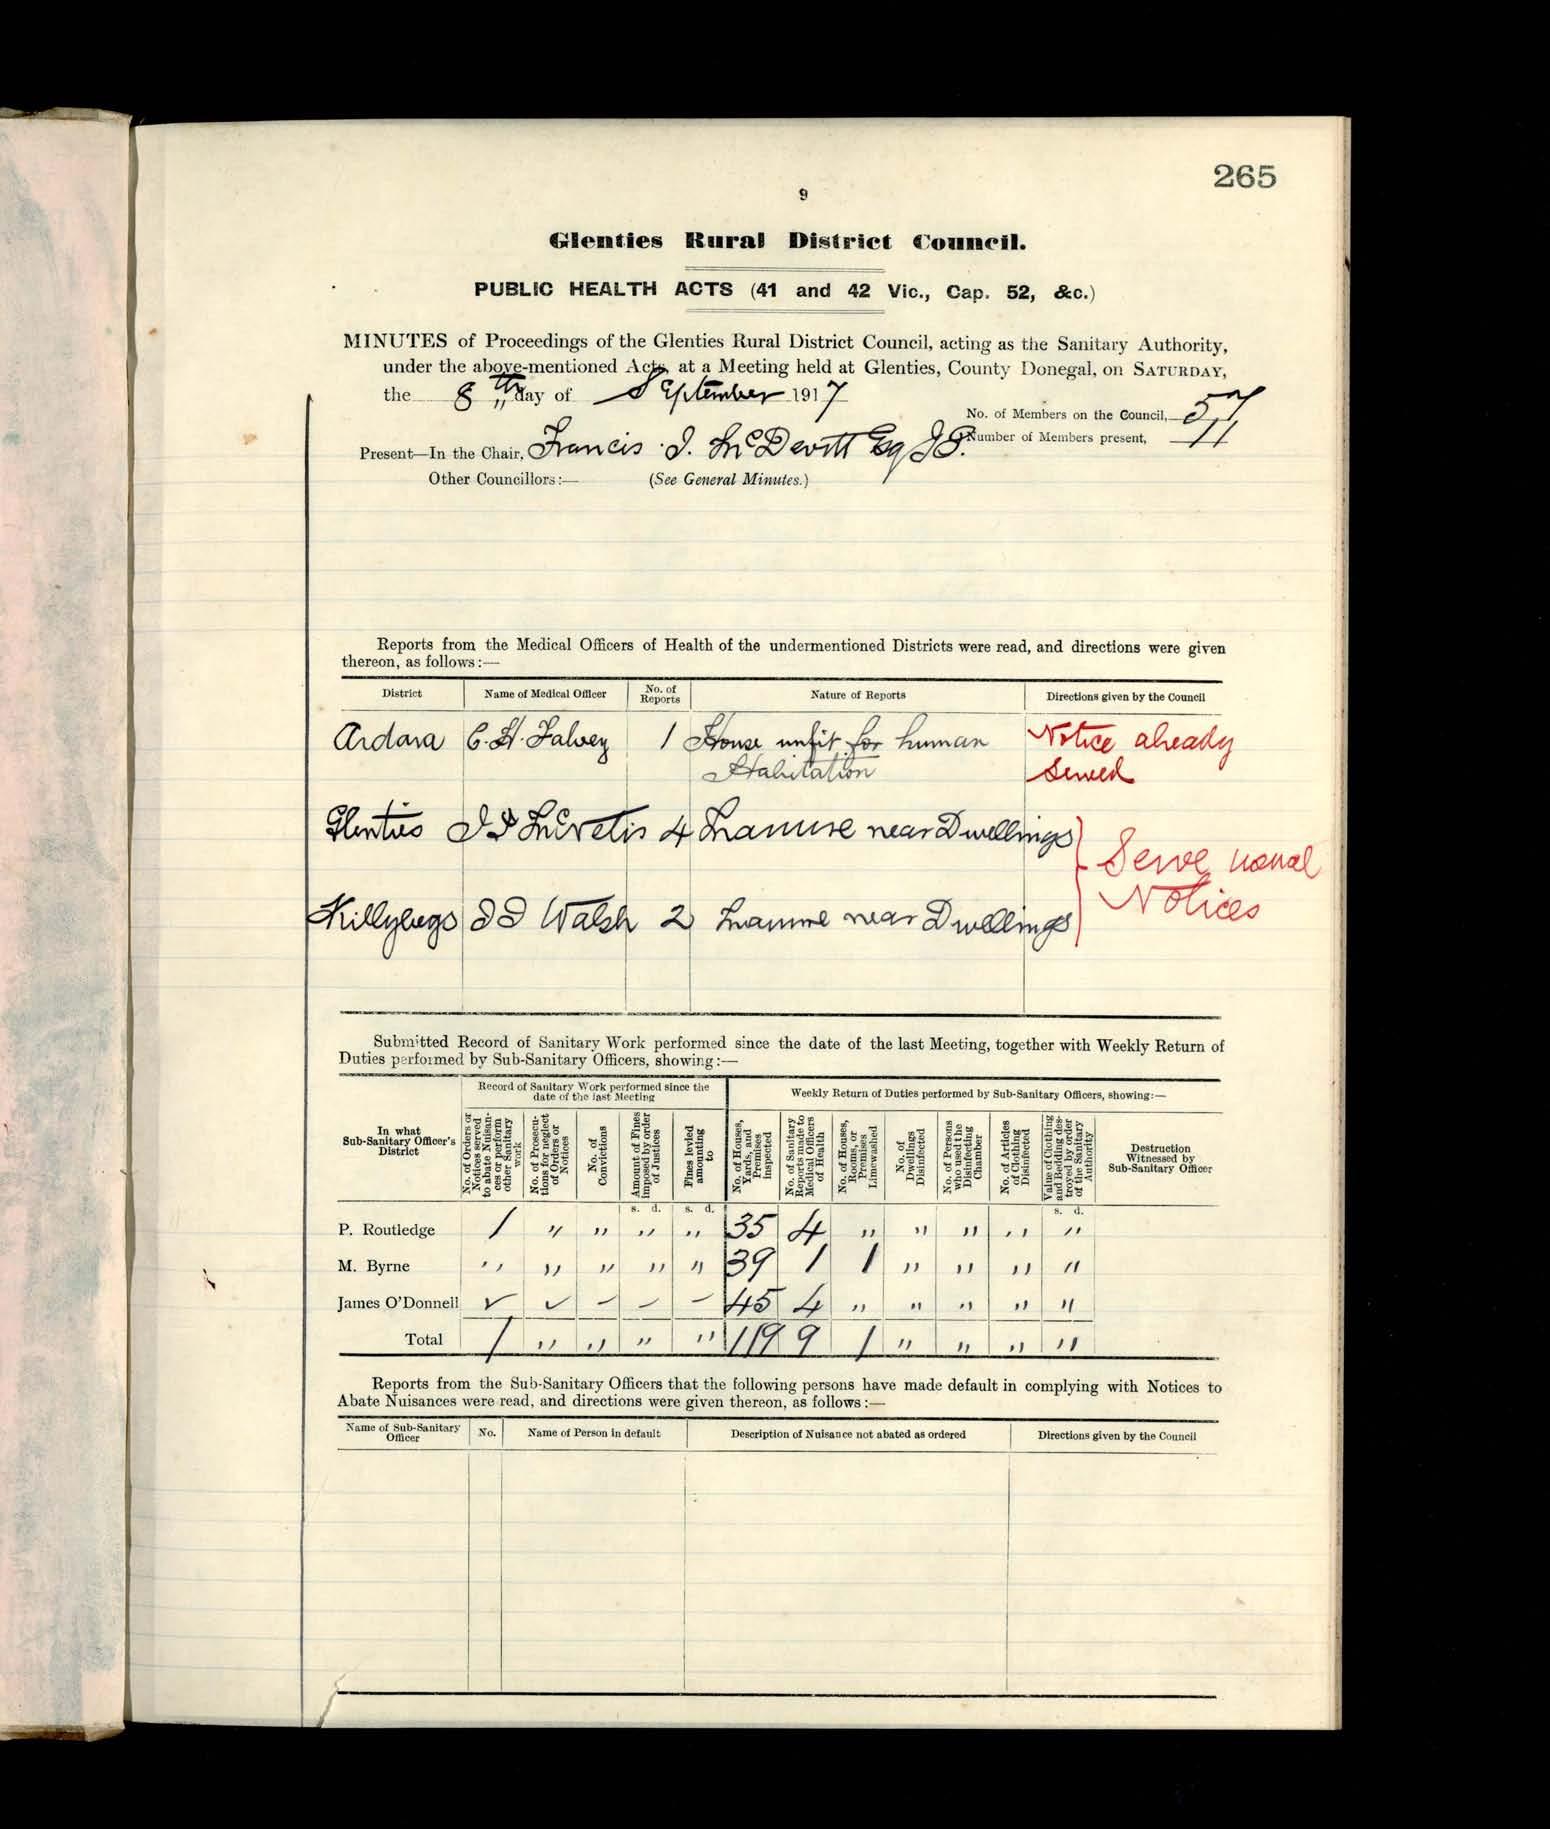 265
9
Glenties Rural District Council.
PUBLIC HEALTH ACTS (41 and 42 Vic., Cap. 52, &c.)
MINUTES of Proceedings of the Glenties Rural District Council, acting as the Sanitary Authority,
under the above-mentioned Acts, at a Meeting held at Glenties, County Donegal, on SATURDAY,
the 8th day of September 1917
No. of Members on the Council, 57
Number of Members present, 11
Present—In the Chair, Francis J. McDevitt Esq J.P.
Other Councillors:— (See General Minutes.)
Reports from the Medical Officers of Health of the undermentioned Districts were read, and directions were given
thereon, as follows:—
District Name of Medical Officer No. of Reports Nature of Reports Directions given by the Council
Ardara C. H. Falvey 1 House unfit for human Notice already
Habitation Served
Glenties 4 Manure near Dwellings
Serve usual
Notices
Killybegs J J Walsh 2 Manure near Dwellings
Submitted Record of Sanitary Work performed since the date of the last Meeting, together with Weekly Return of
Duties performed by Sub-Sanitary Officers, showing:—
Record of Sanitary Work performed since the date of the last Meeting
Weekly Return of Duties performed by Sub-Sanitary Officers, showing:—
In what Sub-Sanitary Officer's District
No. of Orders or Notices served to abate Nuisances or perform other Sanitary work
No. of Prosecutions for neglect of Orders or Notices
No. of Convictions
Amount of Fines imposed by order of Justices
Fines levied amounting to
No. of Houses, Yards, and Premises inspected
No. of Sanitary Reports made to Medical Officers of Health
No. of Houses, Rooms, or Premises Limewashed
No. of Dwellings Disinfected
No. of Persons who used the Disinfecting Chamber
No. of Articles of Clothing Disinfected
Value of Clothing and Bedding destroyed by order of the Sanitary Authority
Destruction Witnessed by Sub-Sanitary Officer
s. d. s. d. s. d.
P. Routledge 1 " " " " 35 4 " " " " "
M. Byrne " " " " " 39 1 1 " " " "
James O'Donnell ✓ ✓ – – – 45 4 " " " " "
Total 1 " " " " 119 9 1 " " " "
Reports from the Sub-Sanitary Officers that the following persons have made default in complying with Notices to
Abate Nuisances were read, and directions were given thereon, as follows:—
Name of Sub-Sanitary Officer No. Name of Person in default Description of Nuisance not abated as ordered Directions given by the Council